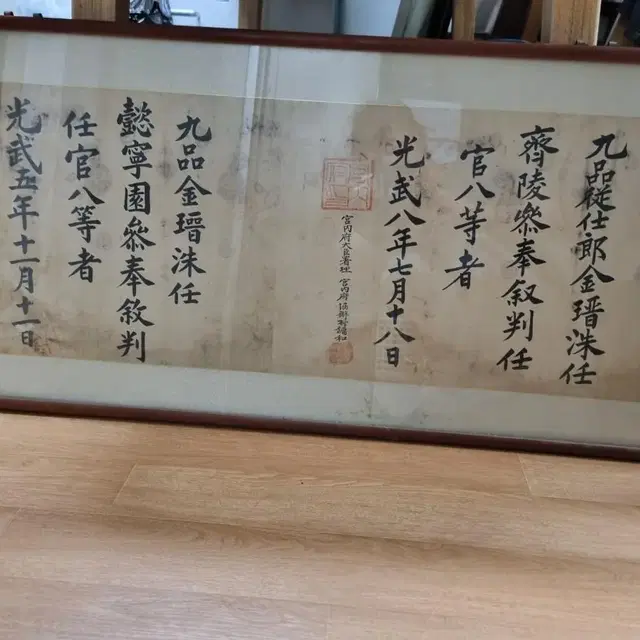 九品從仕郎金瑨洙任
齊陵參奉叙判任
官八等者
光武八年七月十八日
宮內府大臣署理 宮內府協辦
九品金瑨洙任
懿寧園參奉敘判
任官八等者
光武五年十一月十一日